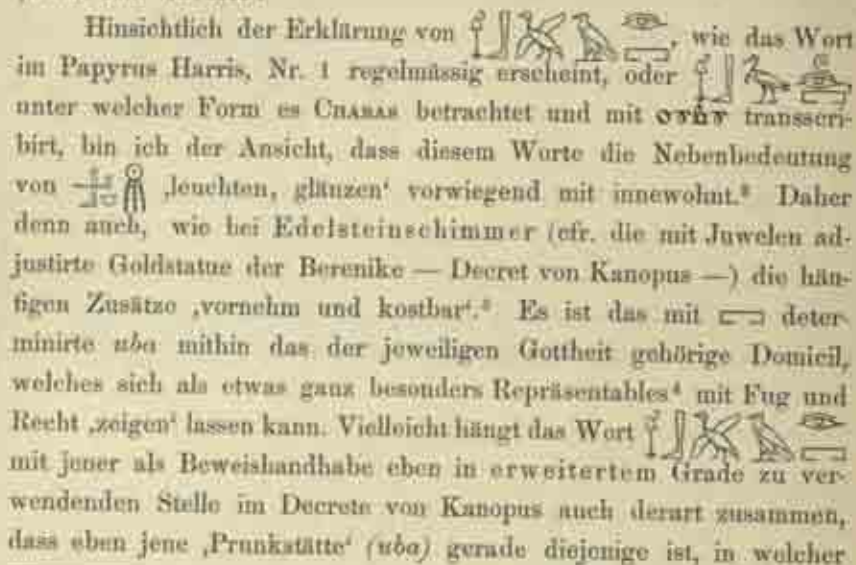 Hinsichtlich der Erklärung von , wie das Wort
im Papyrus Harris, Nr. 1 regelmässig erscheint, oder
unter welcher Form es CHABAS betrachtet und mit transscri-
birt, bin ich der Ansicht, dass diesem Worte die Nebenbedeutung
von ‚leuchten, glänzen‘ vorwiegend mit innewohnt. Daher
denn auch, wie bei Edelsteinschimmer (cfr. die mit Juwelen ad-
justirte Goldstatue der Berenike — Decret von Kanopus —) die häu-
figen Zusätze ‚vornehm und kostbar‘. Es ist das mit deter-
minirte uba mithin das der jeweiligen Gottheit gehörige Domicil,
welches sich als etwas ganz besonders Repräsentables⁴ mit Fug und
Recht ‚zeigen‘ lassen kann. Vielleicht hängt das Wort
mit jener als Beweishandhabe eben in erweitertem Grade zu ver-
wendenden Stelle im Decrete von Kanopus auch derart zusammen,
dass eben jene ‚Prunkstätte‘ (uba) gerade diejenige ist, in welcher